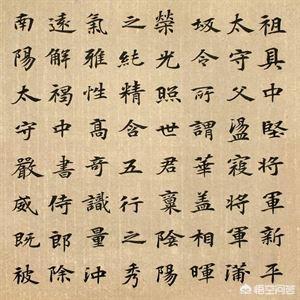 祖具中堅將軍新平
太守父盪寇將軍蒲
坂令所謂華蓋相暉
榮光照世君稟陰陽
之純精含五行之秀
氣雅性高奇識量沖
遠解褐中書侍郎除
南陽太守嚴威既被
悟空问答